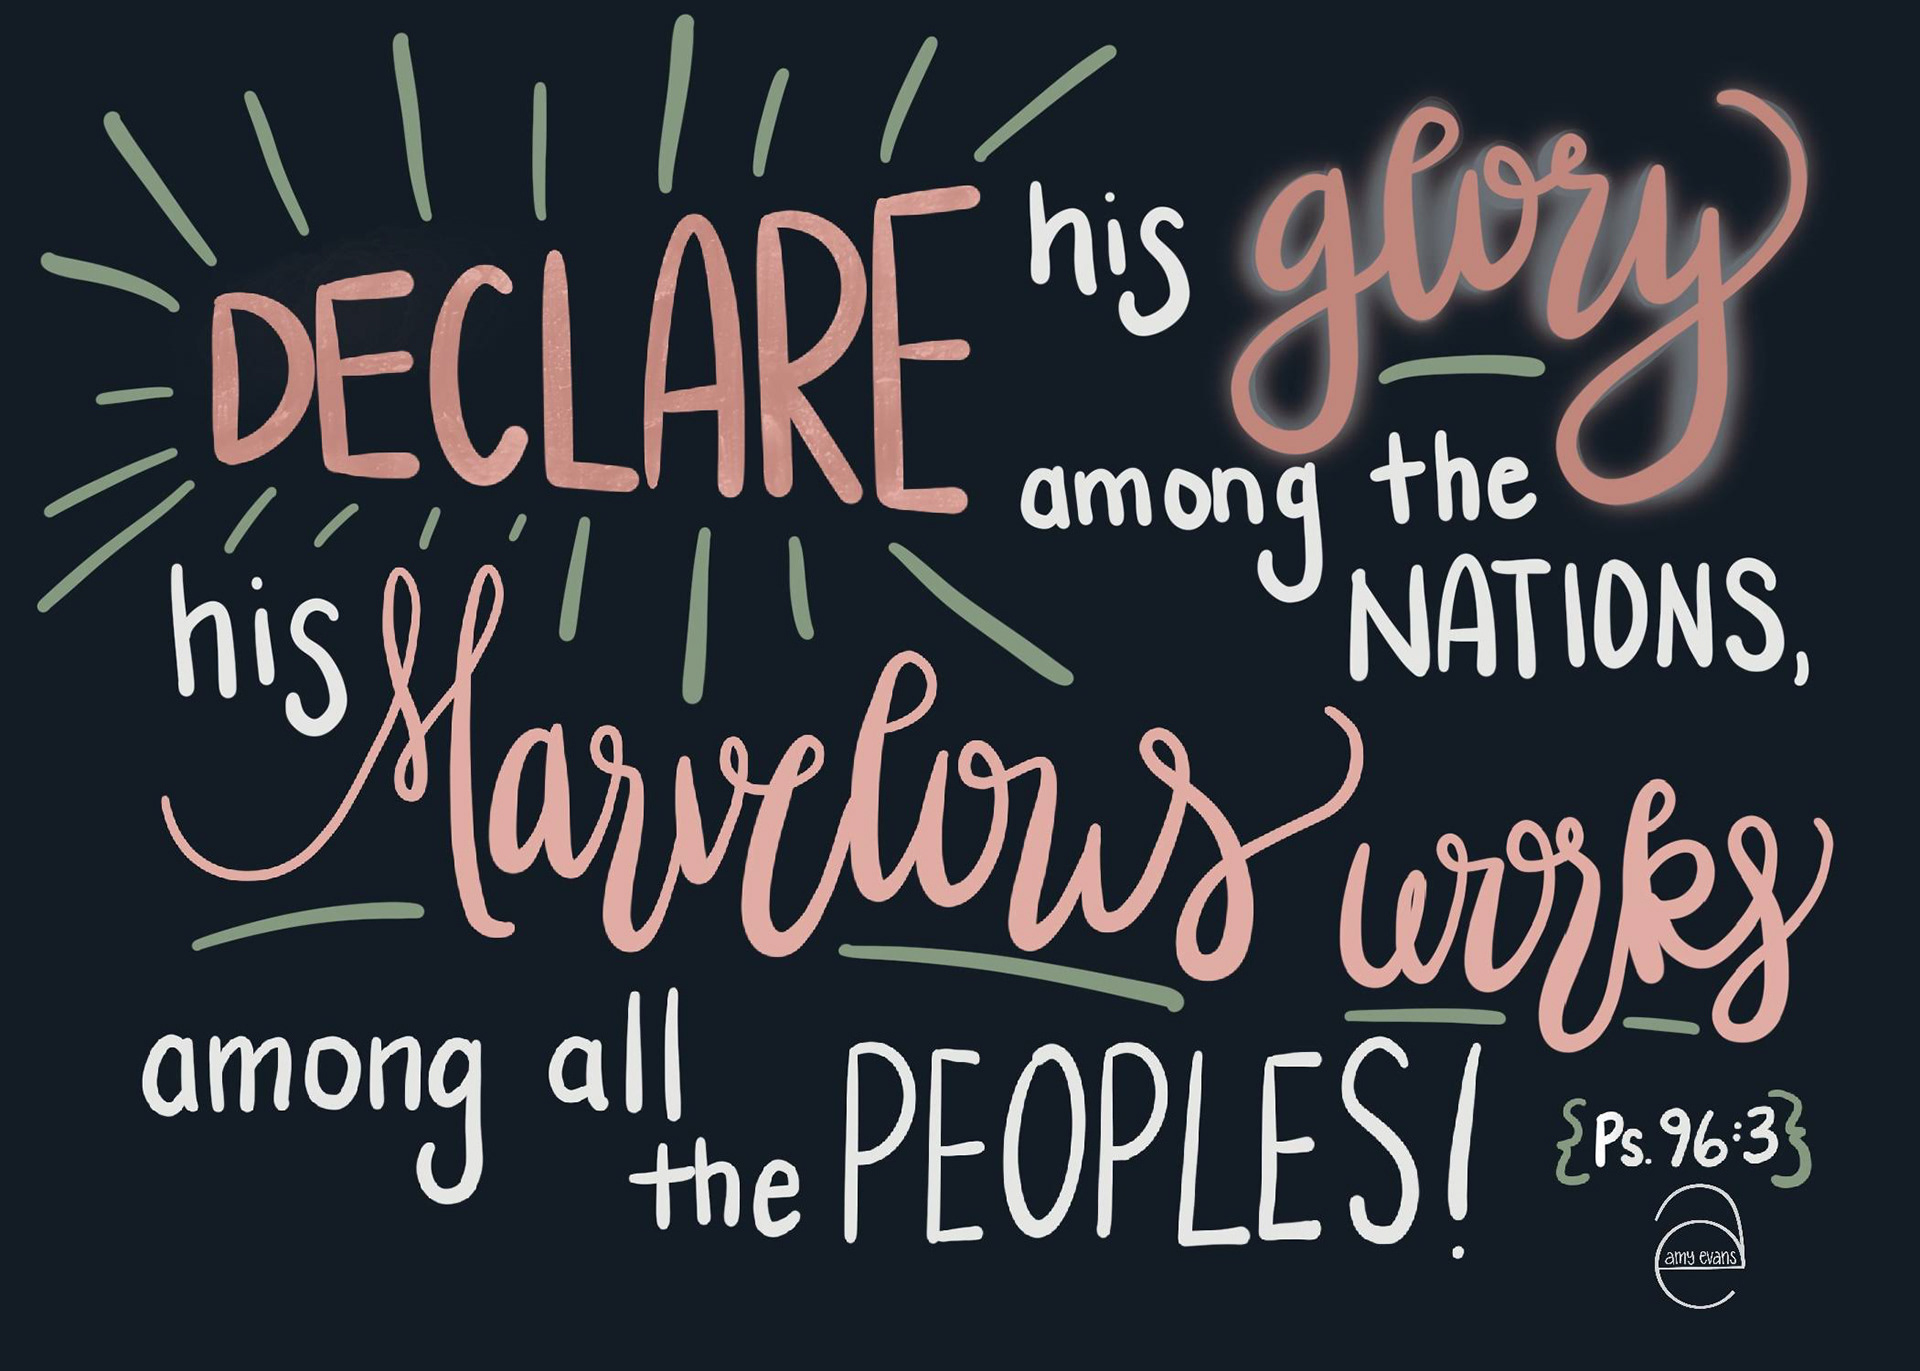 DECLARE his glory
among the
NATIONS,
his Marvelous works
among all
the PEOPLES!
{Ps. 96:3}
amy evans